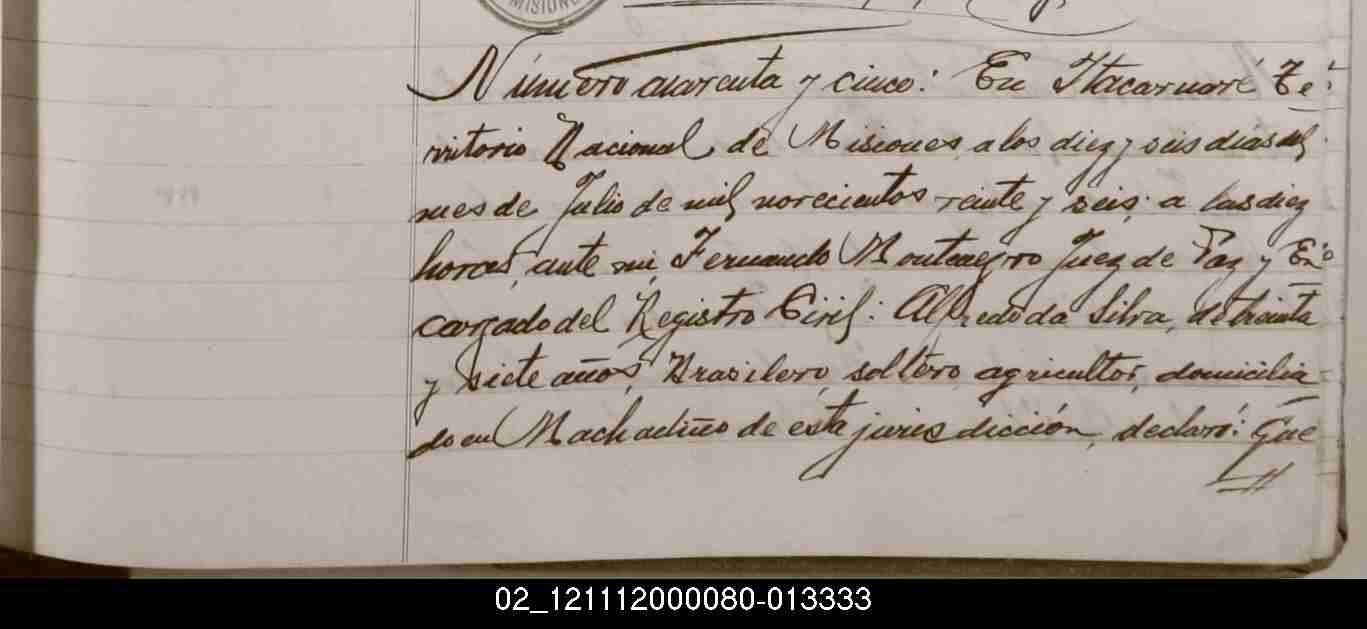 MISIONE
Número cuarenta y cinco: En Itacaruaré Te-
rritorio Nacional de Misiones, a los diez y seis días del
mes de Julio de mil novecientos veinte y seis, a las diez
horas, ante mi, Fernando Montenegro Juez de Paz y En-
cargado del Registro Civil: Alfredo da Silva, de treinta
y siete años, Brasilero, soltero, agricultor, domicilia-
do en Machadiño de esta jurisdicción, declaró: Que
02_121112000080-013333